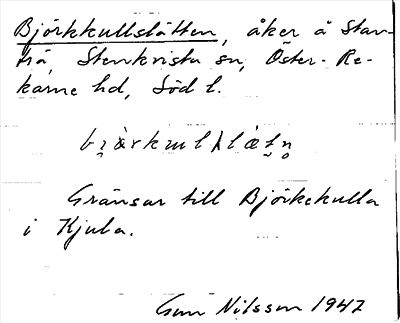 Björkkullslätten, åker å Stav-
trä, Stenkvista sn, Öster-Re-
karne hd, Söd l.
Gränsar till Björkekulla
i Kjula.
Gun Nilsson 1947